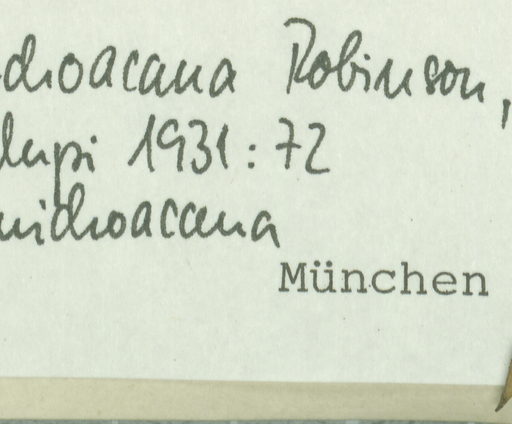 choacana Robinson,
lupi 1931:72
michoacana
München